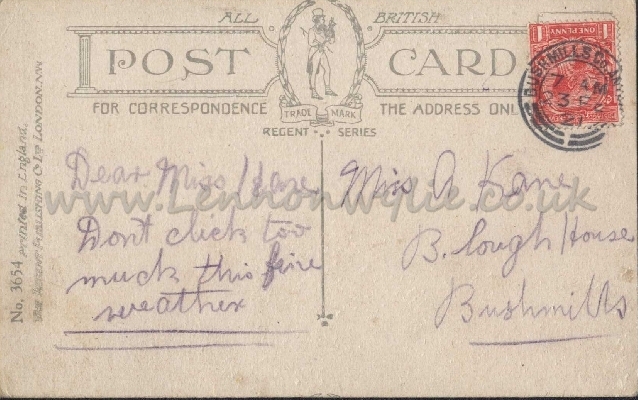 ALL BRITISH
POST CARD
FOR CORRESPONDENCE THE ADDRESS ONLY
TRADE MARK
REGENT SERIES
ONE PENNY
1 1
BUSHMILLS CO.
7 AM
3
21
No. 3654 Printed in England.
PUBLISHING Co Ltd LONDON.
www.Lennonwylie.co.uk
Dear Miss Kane
Dont click too
much this fine
weather
Miss A Kane
B. lough House
Bushmills